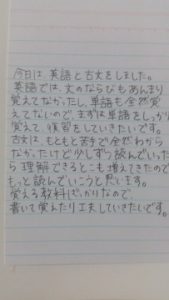 今日は、英語と古文をしました。
英語では、文のならびもあんまり
覚えてなかったし、単語も全然覚
えてないので、まずは単語をしっかり
覚えて、復習をしていきたいです。
古文は、もともと苦手で全然わから
なかったけど少しずつ読んでいった
ら理解できるとこも増えてきたので
もっと読んでいこうと思います。
覚える教科ばっかりなので、
書いて覚えたり工夫していきたいです。